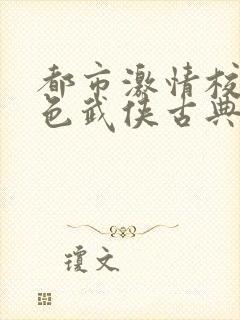 都市激情校
色武侠古典
瓊文